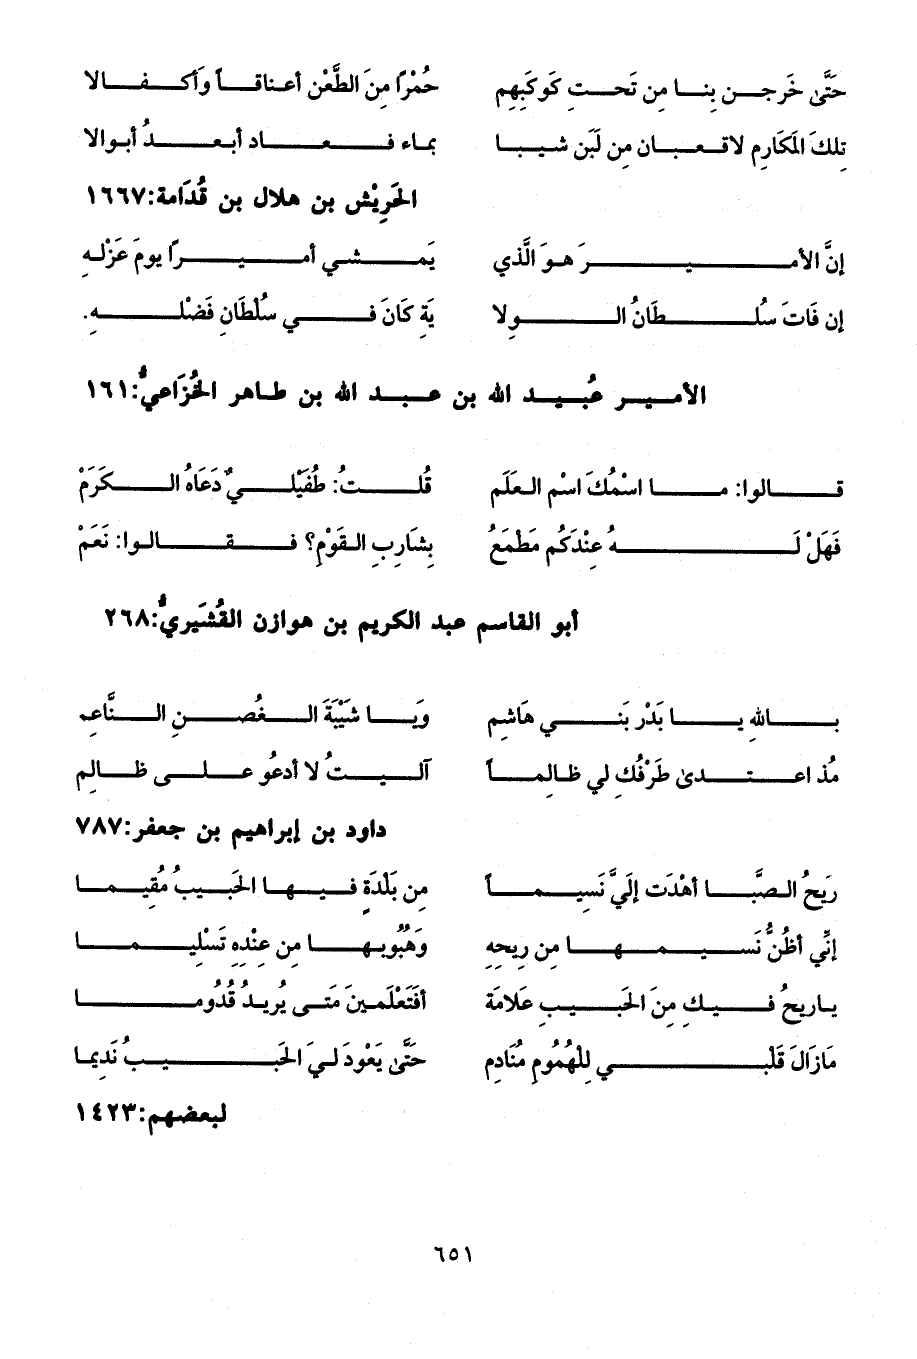 حَتَّى خَرجن بِنا مِن تَحت كَوكَبِهِم حُمْرًا مِنَ الطَّعْن أعناقاً وَأكفالا
تِلكَ المَكَارِم لاقعبان مِن لَبَن شيبا بماء فعاد أبعدُ أبوالا
الحَرِيْش بن هلال بن قُدَامة:١٦٦٧
إنَّ الأميرَ هوَ الَّذي يَمشي أميرًا يومَ عَزْلهِ
إن فَاتَ سلُطَانُ الولا يَة كَانَ في سُلْطَانِ فَضْلهِ.
الأمير عُبيد الله بن عبد الله بن طاهر الخُزَاعيُّ:١٦١
قالوا: ما اسْمُكَ اسْم العَلَم قُلتُ: طُفَيْليٌ دَعَاهُ الكَرَمْ
فَهَلْ لَهُ عِنْدَكُم مَطْمَعُ بِشَارِبِ القَوْمِ؟ فقالوا: نَعَمْ
أبو القاسم عبد الكريم بن هوازن القُشَيريُّ:٢٦٨
باللهِ يا بَدْر بَني هَاشِم وَيا شَبِيْهَ الغُصنِ النَّاعم
مُذ اعتدىٰ طَرْفُكِ لي ظالِماً آليتُ لا أدعُو على ظالِم
داود بن إبراهيم بن جعفر:٧٨٧
رَيحُ الصبَّا أهْدَت إلَيَّ نَسِيماً مِن بَلْدَةٍ فيها الحَبيبُ مُقيما
إنِّي أظُنُّ نَسيمها مِن ريحهِ وَهُبُوبها مِن عِنْدِهِ تَسْليما
ياريحُ فيك مِنَ الحَبيبِ عَلامَة أفَتَعْلَمينَ مَتى يُريدُ قُدُوما
مَازَالَ قَلْبي لِلْهُمُومِ مُنَادِم حَتَّىٰ يَعُودَ ليَ الحَبيبُ نَدِيما
لبعضهم:١٤٢٣
٦٥١